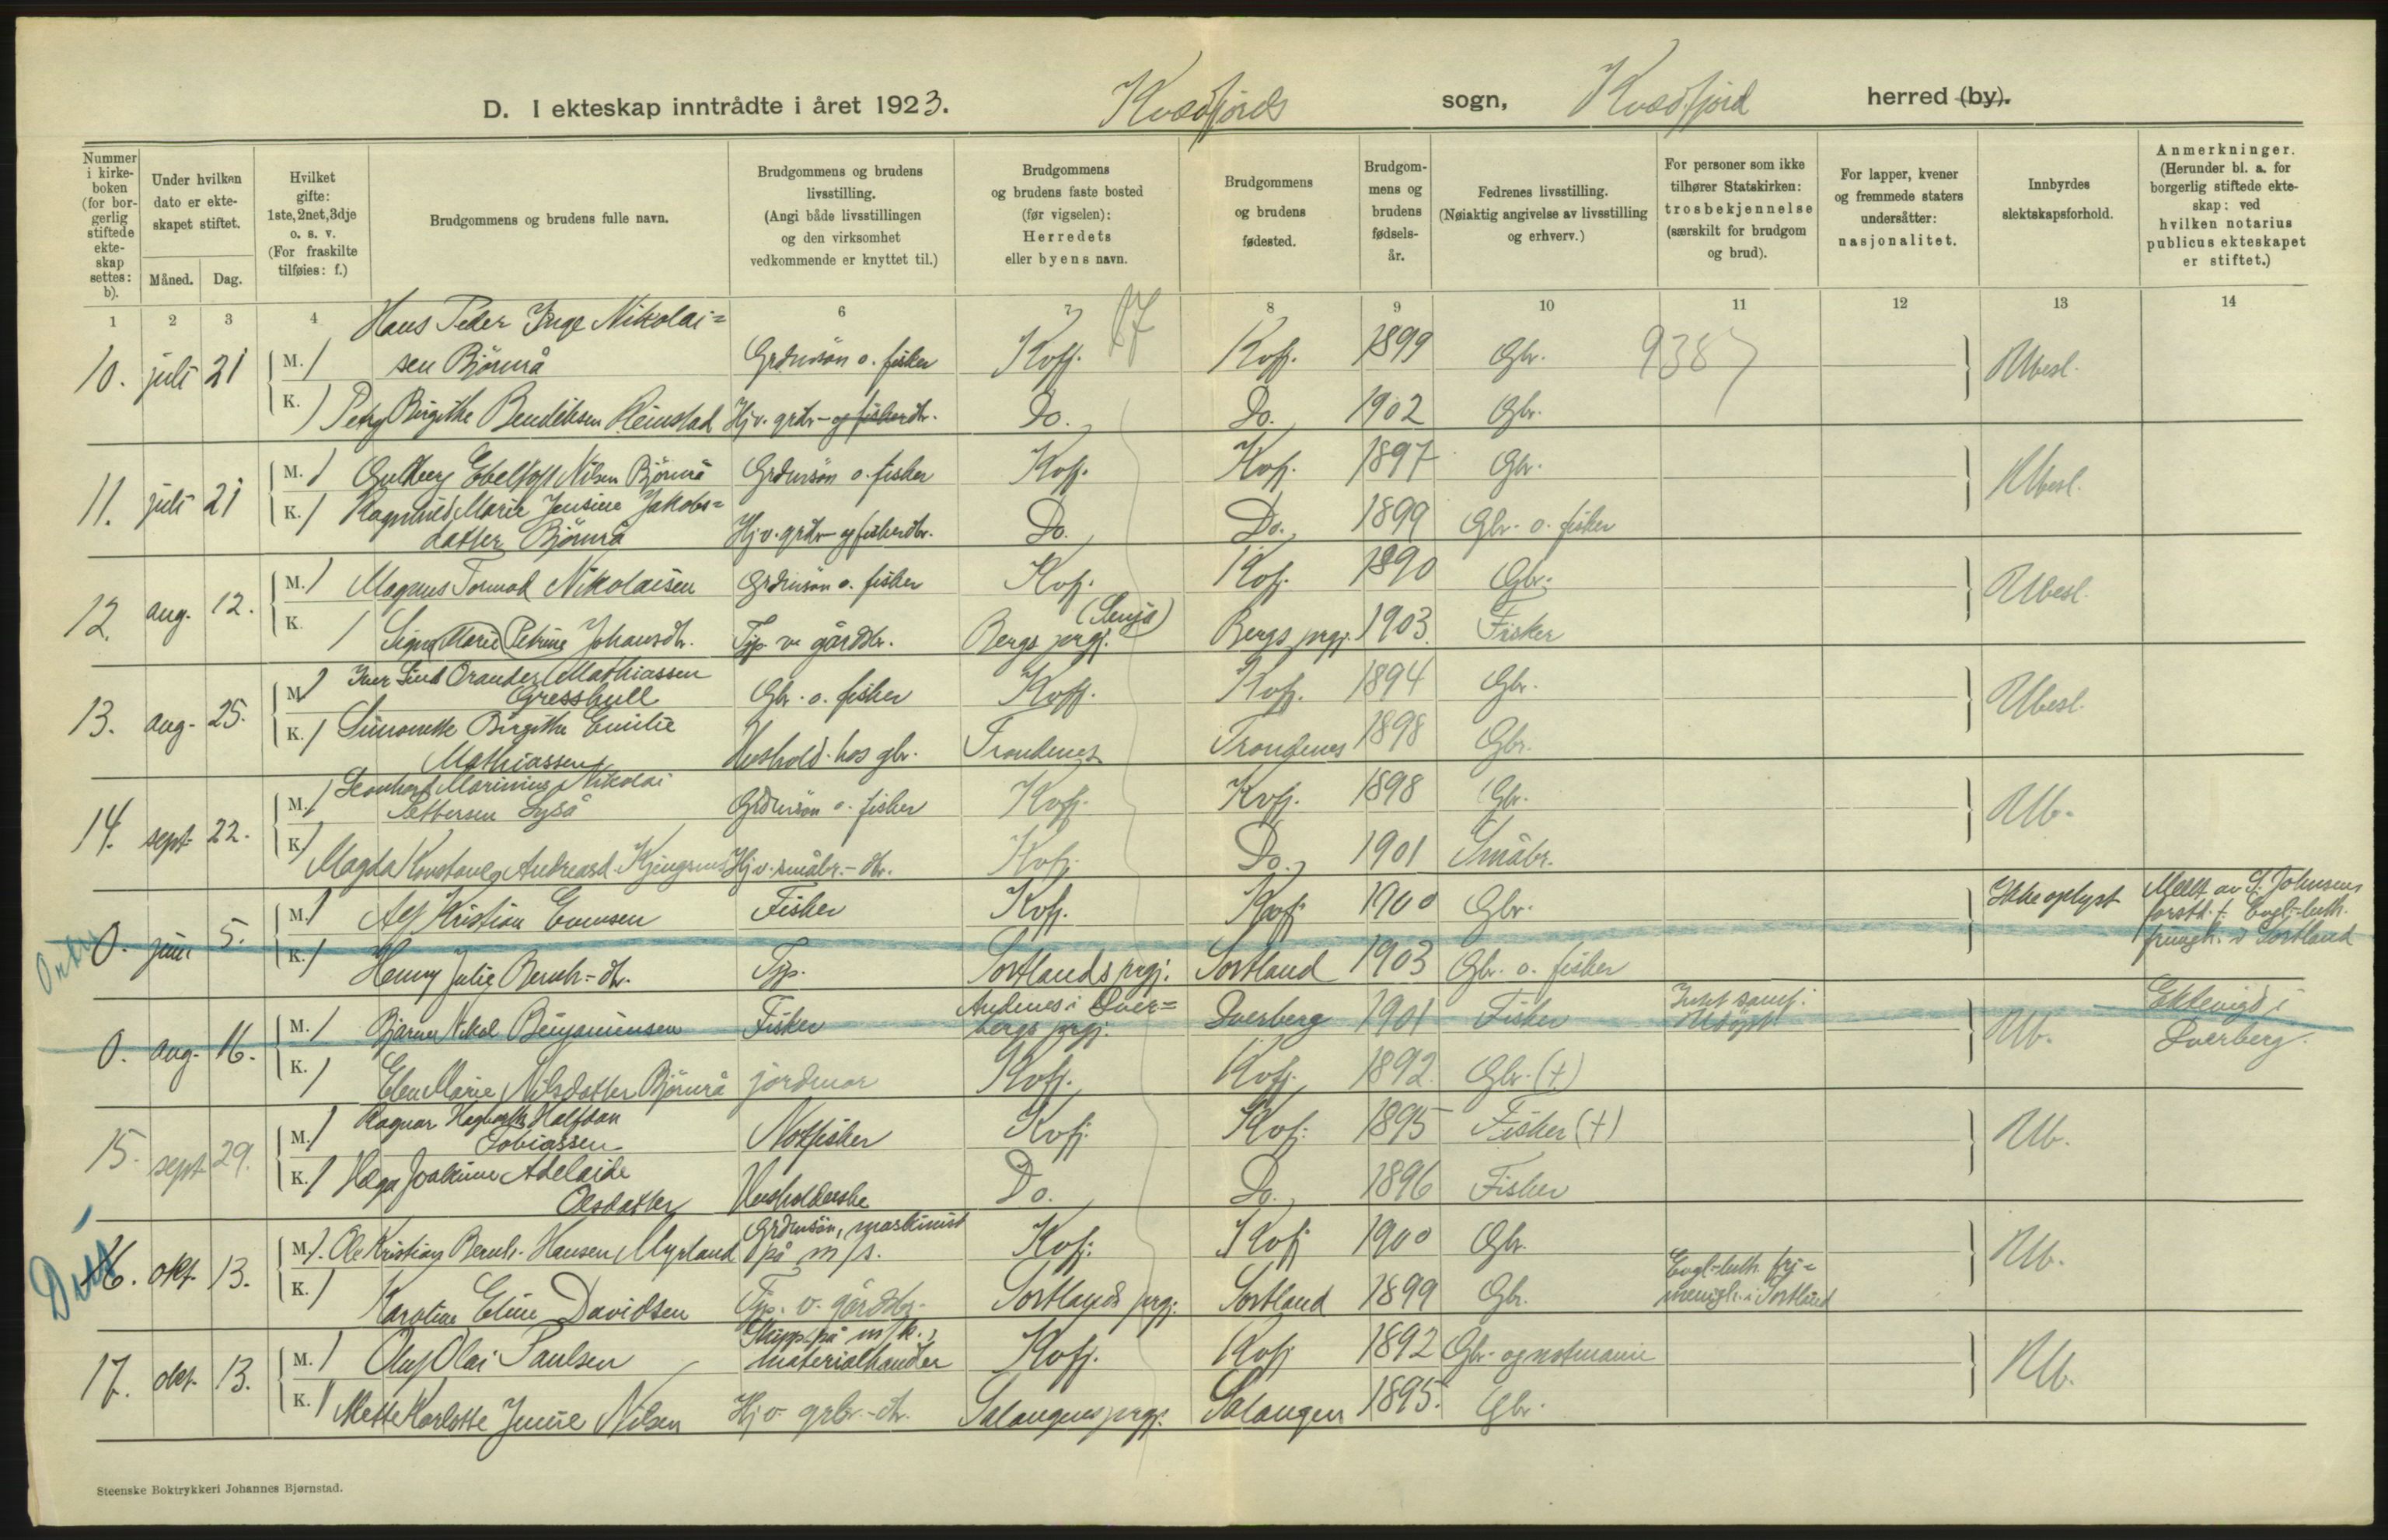 D. I ekteskap inntrådte i året 1923. Kvædfjords sogn, Kvædfjord herred (by).
Nummer i kirkeboken (for borgerlig stiftede ekteskap settes: b).
Under hvilken dato er ekteskapet stiftet.
Måned. Dag.
Hvilket gifte: 1ste, 2net, 3dje o. s. v. (For fraskilte tilføies: f.)
Brudgommens og brudens fulle navn.
Brudgommens og brudens livsstilling. (Angi både livsstillingen og den virksomhet vedkommende er knyttet til.)
Brudgommens og brudens faste bosted (før vigselen): Herredets eller byens navn.
Brudgommens og brudens fødested.
Brudgommens og brudens fødselsår.
Fedrenes livsstilling. (Nøiaktig angivelse av livsstilling og erhverv.)
For personer som ikke tilhører Statskirken: trosbekjennelse (særskilt for brudgom og brud).
For lapper, kvener og fremmede staters undersåtter: nasjonalitet.
Innbyrdes slektskapsforhold.
Anmerkninger. (Herunder bl. a. for borgerlig stiftede ekteskap: ved hvilken notarius publicus ekteskapet er stiftet.)
1 2 3 4 6 7 8 9 10 11 12 13 14
87 9387
Hans Peder Inge Nikolai=
10. juli 21 M. 1 sen Björnrå Grdmsön o. fisker Kvfj. Kvfj. 1899 Gbr. Ubesl.
K. 1 Petry Birgithe Bendiksen Reinstad Hj v. grdr- og fisherdtr. Do. Do. 1902 Gbr.
11. juli 21 M. 1 Gulberg Ebeltoft Nilsen Björnrå Grdmsön o. fisker Kvfj. Kvfj. 1897 Gbr. Ubesl.
K. 1 Ragnhild Marie Jensine Jakobs=
datter Björnrå Hj v. grdr- og fisherdtr. Do. Do. 1899 Gbr. o. fisker
12. aug. 12. M. 1 Magnus Tormod Nikolaisen Grdmsön o. fisker Kvfj. Kvfj. 1890 Gbr. Ubesl.
K. 1 Signe Marie Petrine Johansdtr. Tjp. v. gårdbr. Bergs prgj. (Senja) Bergs prgj. 1903. Fisker
13. aug. 25. M. 1 Iver Lind Orander Mathiassen
Gresshull Gbr. o. fisker Kvfj. Kvfj. 1894 Gbr. Ubesl.
K. 1 Simonette Birgithe Emilie
Mathiassen Hushold. hos gbr. Trondenes Trondenes 1898 Gbr.
14. sept. 22. M. 1 Leonhard Marinius Nikolai
Pettersen Grdmsön o. fisker Kvfj. Kvfj. 1898 Gbr. Ub.
K. 1 Magda Konstanse Andreasd. Hj v. småbr.-dtr. Kvfj. Do. 1901 Småbr.
0. juni 5. M. 1 Alf Kristian Evensen Fisker Kvfj. Kvfj. 1900 Gbr. Ikke oplyst Meldt av S. Johnsens
forsth. f. Evgl-luth.
frimgh. i Sortland
K. 1 Henny Julie Bernh-dtr. Tjp. Sortlands prgj. Sortland 1903 Gbr. o. fisker
0. aug. 16. M. 1 Bjarne Nikol Benjaminsen Fisker Andenes i Dver=
bergs prgj. Dverberg 1901 Fisker Ub. Ektevigd i
Dverberg.
K. 1 Elen Marie Nilsdatter Björnrå jordmor Kvfj. Kvfj. 1892. Gbr. (+)
15. sept. 29. M. 1 Ragnar Hagbarth Halfdan
Tobiassen Notfisker Kvfj. Kvfj. 1895 Fisker (+) Ub.
K. 1 Helga Joakime Adelaide
Olesdatter Husholderske Do. Do. 1896 Fisker
16. okt. 13. M. 1. Ole Kristian Bernh. Hansen Myrland Grdmsön, maskinist
på m/s. Kvfj. Kvfj 1900 Gbr. Ub.
K. 1 Karoline Eline Davidsen Tjp. v. gårdbr. Sortlands prgj. Sortland 1899 Gbr. Evgl-luth. fri=
menigh. i Sortland
17. okt. 13. M. 1 Oluf Olai Paulsen Skipp. på m/k.,
materialhandler Kvfj. Kvfj 1892 Gbr. og notmann Ub.
K. 1 Mette Karlotte Jenine Nilsen Hj v. grbr.-dtr. Salangens prgj. Salangen 1895. Gbr.
Steenske Boktrykkeri Johannes Bjørnstad.